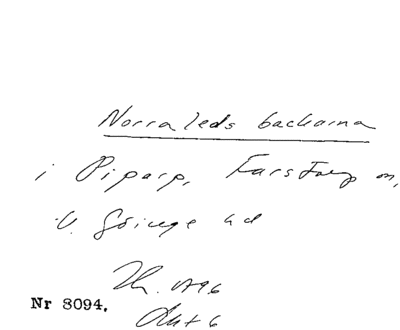 Norra leds backarna
i Piparp, Farstorp sn,
V. Göinge hd
Nr 8094.